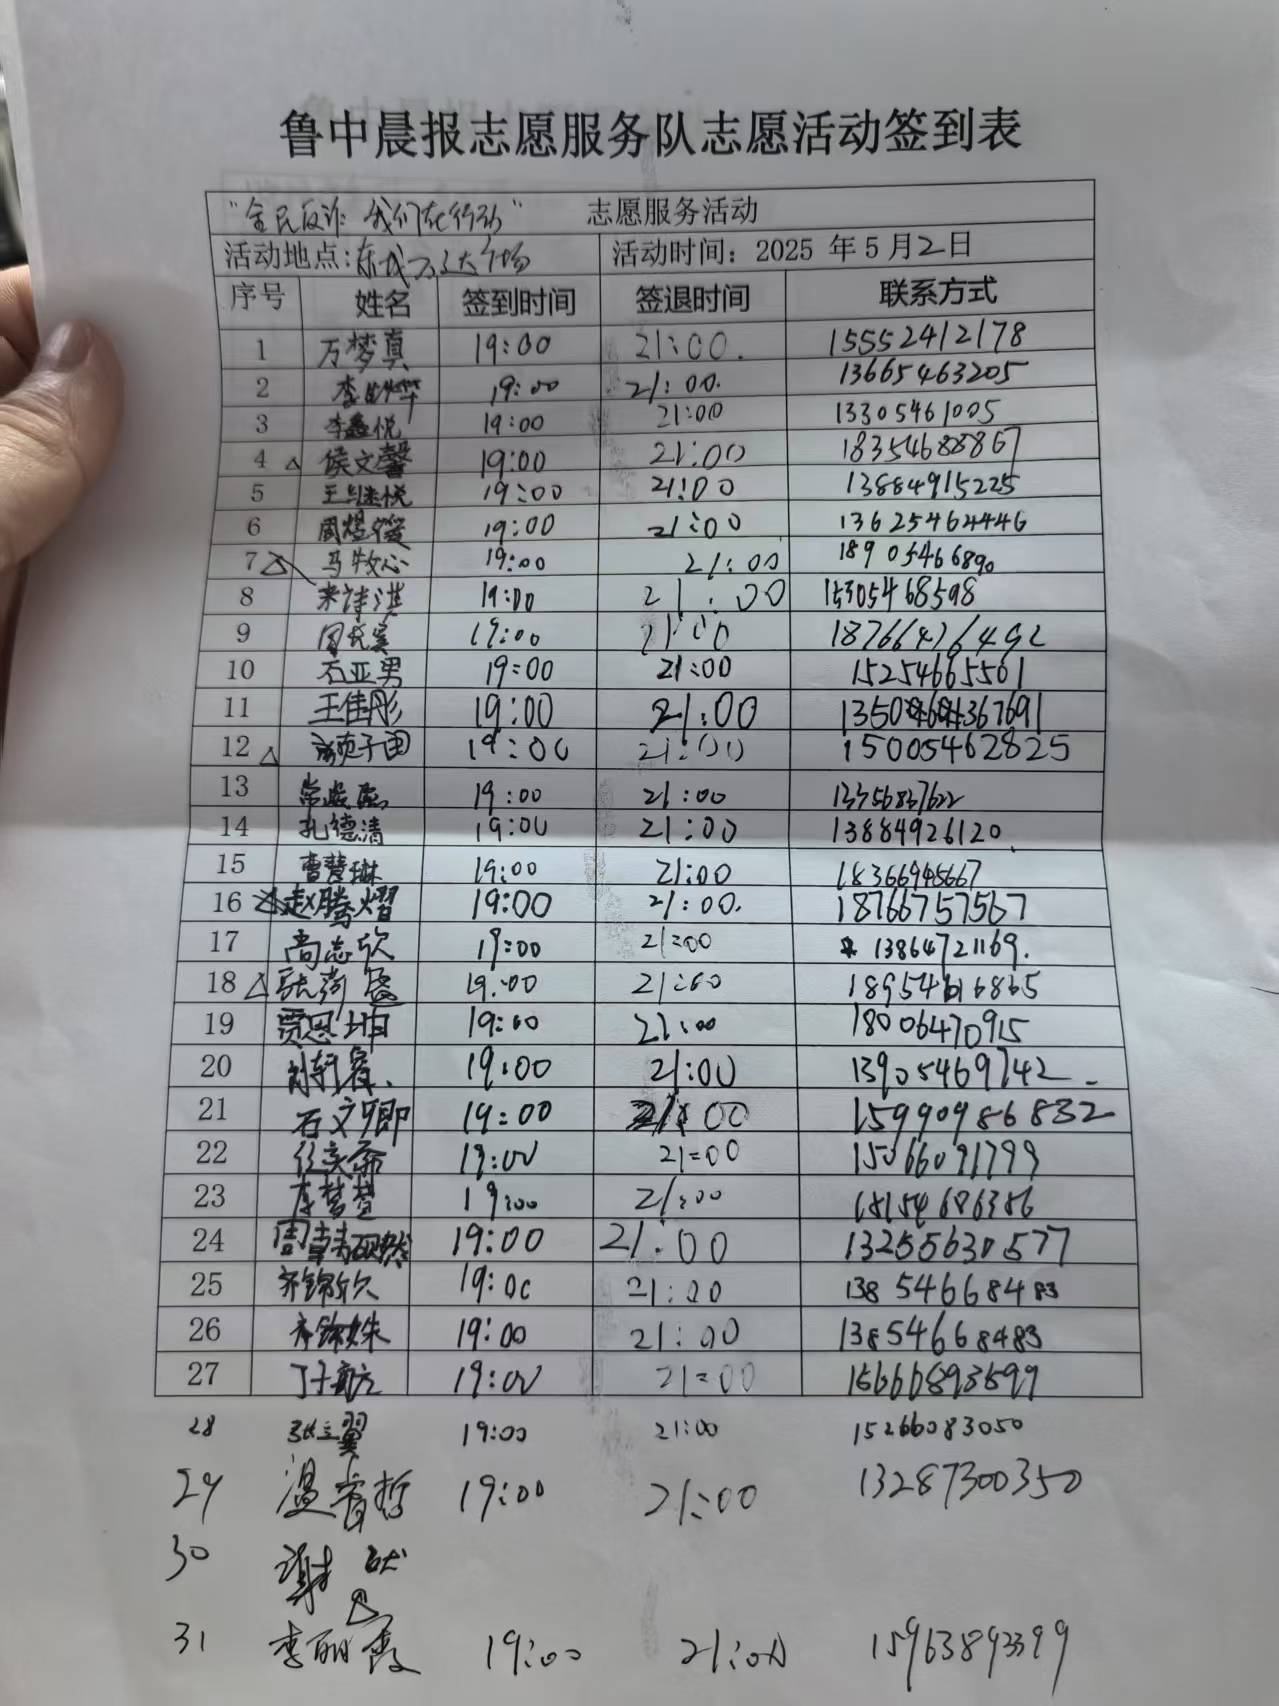 鲁中晨报志愿服务队志愿活动签到表
“全民反诈 我们在行动” 志愿服务活动
活动地点:东城万达广场 活动时间：2025 年 5 月 2 日
序号 姓名 签到时间 签退时间 联系方式
1 万梦真 19:00 21:00. 15552412178
2 19:00 21:00. 13665463205
3 李鑫悦 19:00 21:00 13305461005
4 △ 侯文馨 19:00 21:00 18354688867
5 王继悦 19:00 21:00 13884915225
6 19:00 21:00 13625464446
7 △ 马牧心 19:00 21:00 18905466890
8 来诗淇 19:00 21:00 15305468598
9 19:00 21:00 18766476492
10 石亚男 19:00 21:00 15254665561
11 王佳彤 19:00 21:00
12 △ 19:00 21:00 15005462825
13 19:00 21:00 13756837622
14 孔德清 19:00 21:00 13884926120
15 曹慧琳 19:00 21:00 18366948667
16 △ 赵腾熠 19:00 21:00. 18766757567
17 尚志欣 19:00 21:00 13864721169.
18 △ 19:00 21:00
19 贾恩玥 19:00 21:00 18006470915
20 19:00 21:00 13905469742
21 石文卿 19:00 21:00 15990986832
22 19:00 21:00 15066091799
23 19:00 21:00 18154686386
24 19:00 21:00 13255630577
25 齐锦欣 19:00 21:00 13854668483
26 齐锦姝 19:00 21:00 13854668483
27 丁子航 19:00 21:00 15666893599
28 张立翼 19:00 21:00 15266083050
29 温睿哲 19:00 21:00 13287300350
30 谢
△
31 李丽霞 19:00 21:00 15963893399